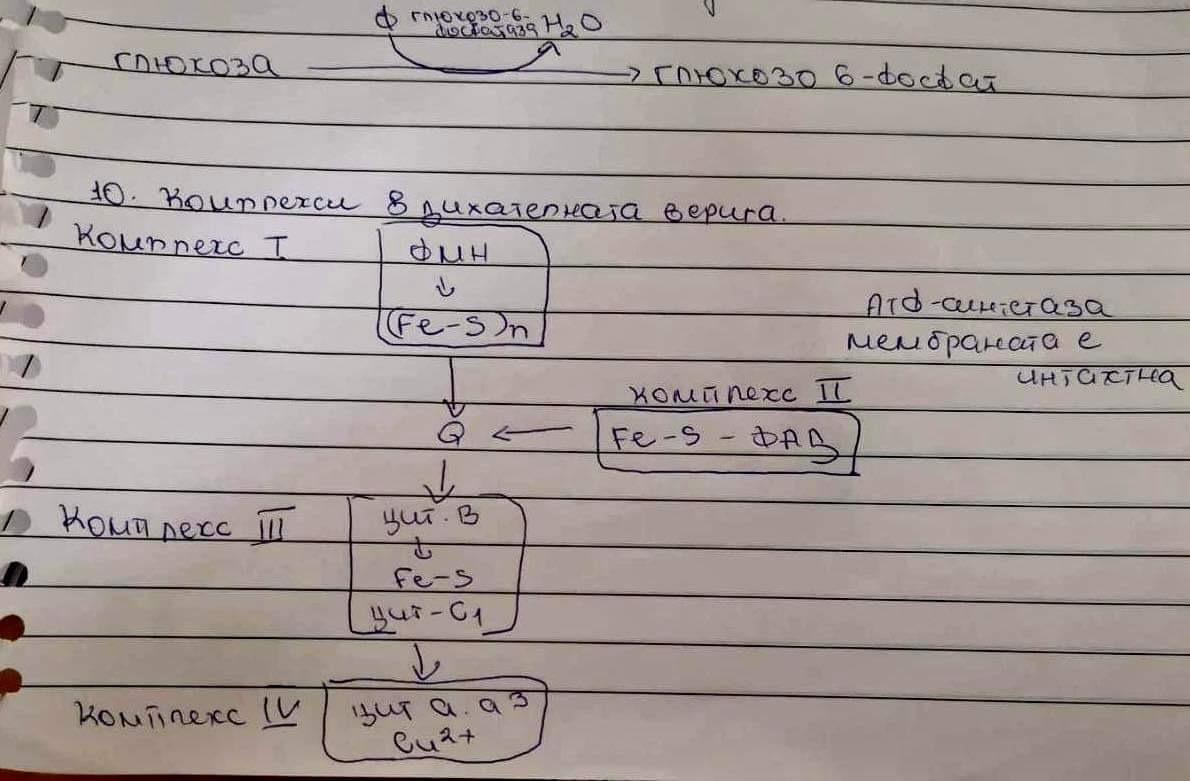 Ф глюкозо-6-фосфатаза H₂O
глюкоза → глюкозо 6-фосфат
10. Комплекси в дихателната верига.
Комплекс I
ФМН
↓
(Fe-S)n
АТФ-синтетаза
мембраната е
интактна
комплекс II
Q ← Fe-S - ФАД
↓
Комплекс III
цит. B
↓
Fe-S
цит-C1
↓
Комплекс IV
цит a. a³
Cu²⁺